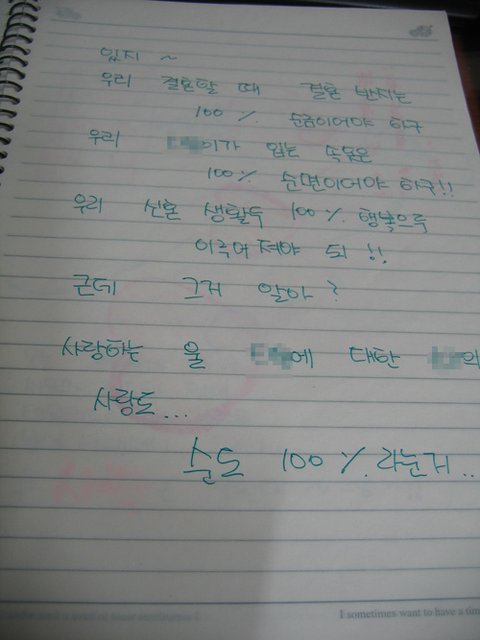 있지 ~
우리 결혼할 때 결혼 반지는
100 % 순금이어야 하구
우리 이가 입는 속옷은
100 % 순면이어야 하구!!
우리 신혼 생활두 100 % 행복으루
이루어져야 되 !!
근데 그거 알아 ?
사랑하는 울 에 대한 의
사랑도...
순도 100 % 라는거..
I sometimes want to have a tim